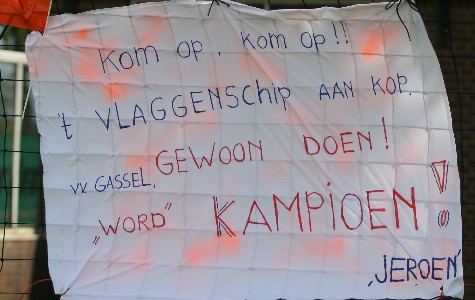 Kom op, Kom op!!
't VLAGGENSCHip AAN KOP.
GEWOON DOEN!
v.v. GASSEL,
„WORD” KAMPiOEN!
,JEROEN'